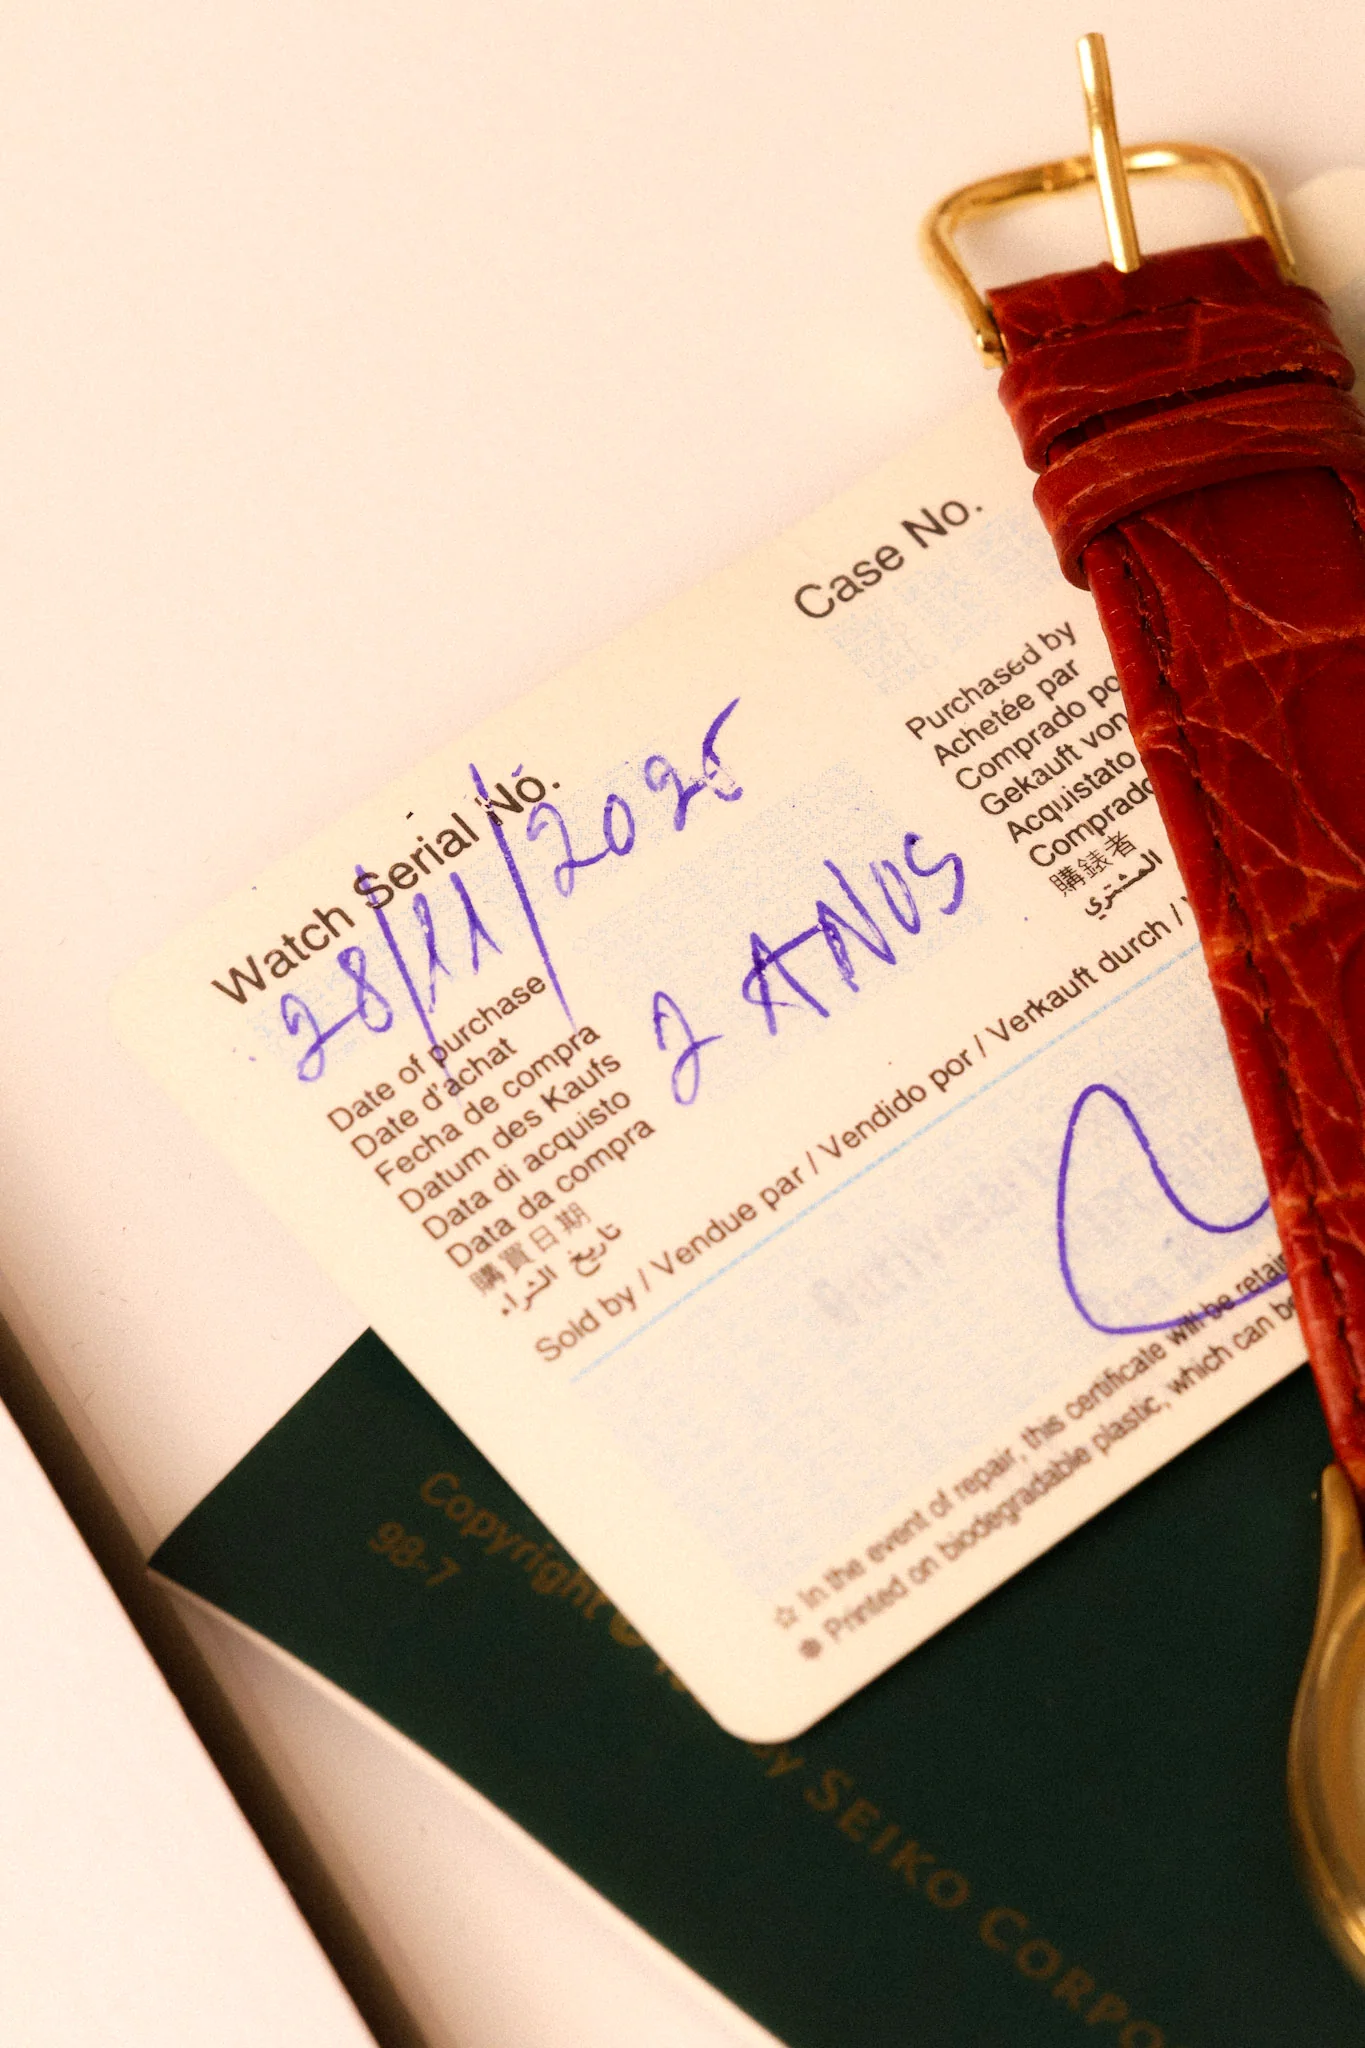 Watch Serial No.
Case No.
28/11/2025
2 ANOS
Date of purchase
Date d'achat
Fecha de compra
Datum des Kaufs
Data di acquisto
Data da compra
購買日期
تاريخ الشراء
Purchased by
Achetée par
Comprado po
Gekauft von
Acquistato
Comprado
購錶者
المشتري
Sold by / Vendue par / Vendido por / Verkauft durch /
☆ In the event of repair, this certificate will be retain
● Printed on biodegradable plastic, which can be
Copyright © by SEIKO CORPO
98-7